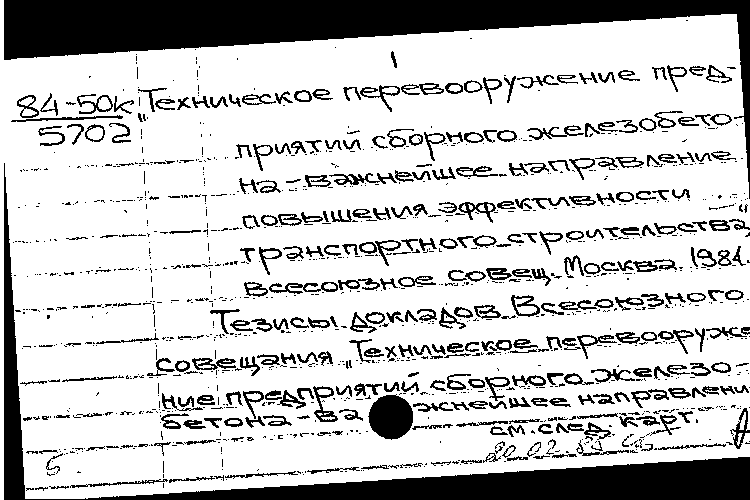 1
84-50к „Техническое перевооружение пред-
5702
приятий сборного железобето-
на-важнейшее направление
повышения эффективности
транспортного строительства“,
всесоюзное совещ. Москва. 1984.
Тезисы докладов Всесоюзного
совещания „Техническое перевооруже
ние предприятий сборного железо-
бетона-ва жнейшее направлени
см. след. карт.
20.02.85